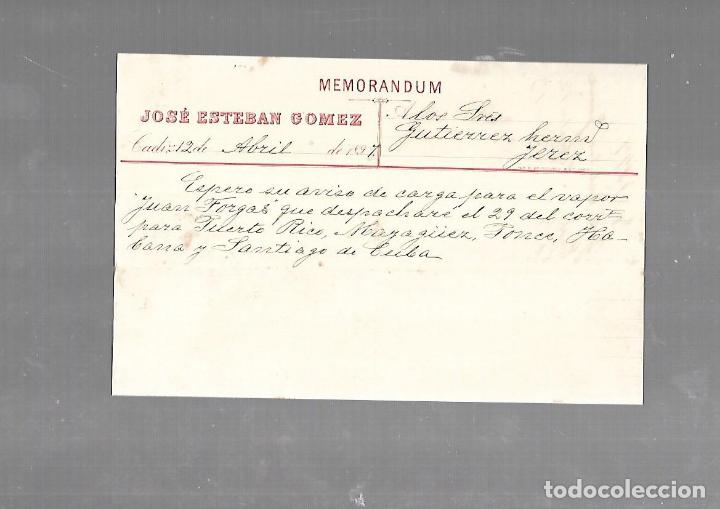 MEMORANDUM
JOSÉ ESTEBAN GOMEZ
Cadiz 12 de Abril de 1897.
A los Sres
Gutierrez herms
Jerez
Espero su aviso de carga para el vapor
"Juan Forgas" que despacharé el 29 del corrte
para Puerto Rico, Mayagüez, Ponce, Ha-
bana y Santiago de Cuba
todocoleccion.net